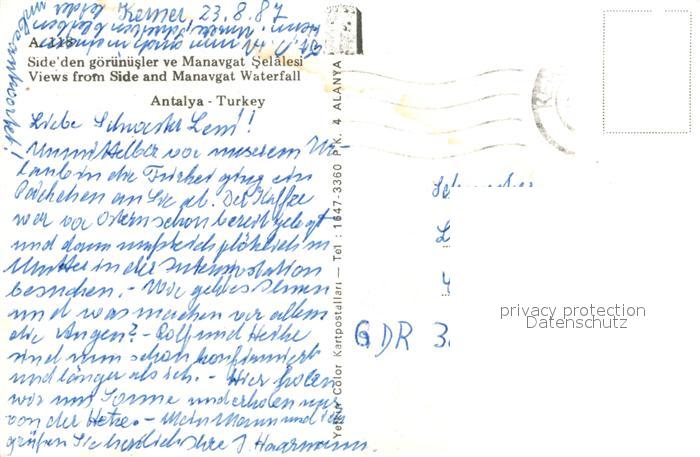 Kemer 23.8.87
A-118
Side'den görünüşler ve Manavgat Şelâlesi
Views from Side and Manavgat Waterfall
Antalya - Turkey
Liebe Schwester Leni!
Unmittelbar vor unserem Ur-
laub in die Türkei ging ein
Päckchen an Sie ab. Der Kaffee
war vor Ostern schon bereit gelegt
und dann mußte ich plötzlich m.
Mutter in der Intensivstation
besuchen. - Wie geht es Ihnen
und was machen vor allem
die Augen? - Rolf und Heike
sind nun schon konfirmiert
und länger als ich. - Hier holen
wir uns Sonne und erholen uns
von der Hetze. - Mein Mann und ich
grüßen Sie herzlich Ihre J. Haarmann.
unbeantwortet!
Yelkin Color Kartpostalları — Tel : 1647-3360 P. K. 4 ALANYA
GDR 3
privacy protection
Datenschutz